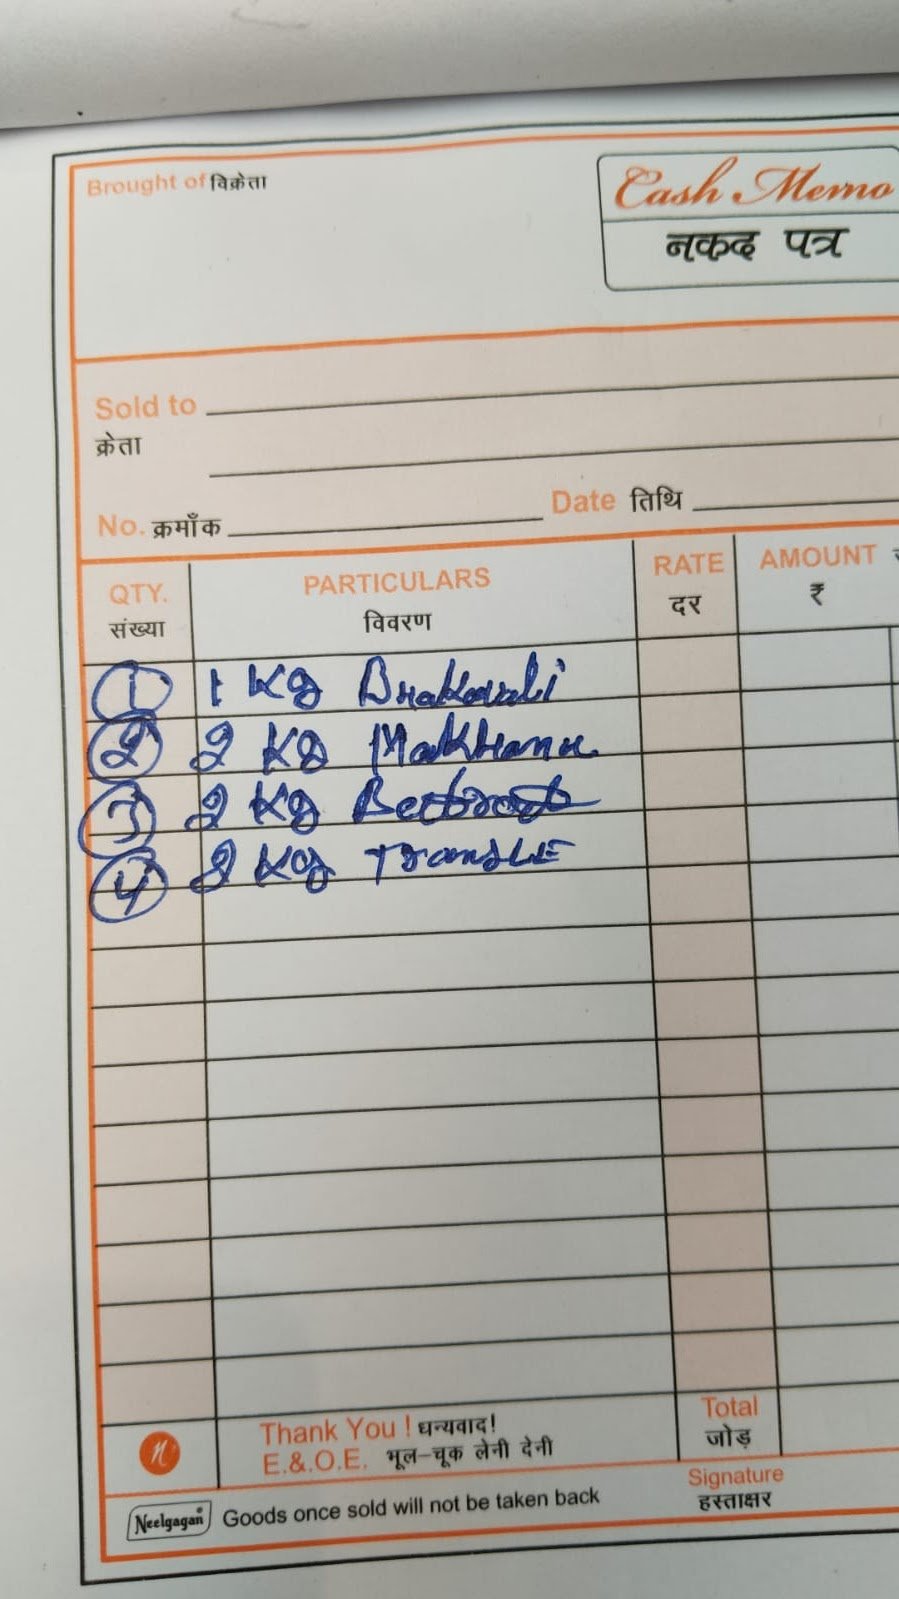 Brought of विक्रेता
Cash Memo
नकद पत्र
Sold to
क्रेता
No. क्रमाँक Date तिथि
QTY. PARTICULARS RATE AMOUNT
संख्या विवरण दर ₹
1 1 KG Bhakarwali
2 2 KG Makhana
3 2 KG Beetroot
4 2 KG
Thank You ! धन्यवाद! Total
E.&.O.E. भूल-चूक लेनी देनी जोड़
Signature
हस्ताक्षर
Neelgagan Goods once sold will not be taken back